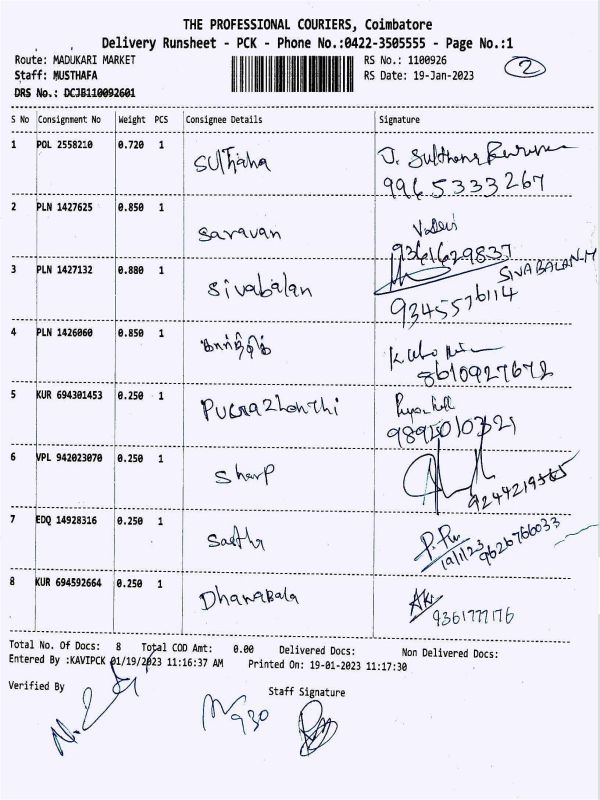 THE PROFESSIONAL COURIERS, Coimbatore
Delivery Runsheet - PCK - Phone No.:0422-3505555 - Page No.:1
Route: MADUKARI MARKET
Staff: MUSTHAFA
DRS No.: DCJB110092601
RS No.: 1100926
RS Date: 19-Jan-2023
2
S No Consignment No Weight PCS Consignee Details Signature
1 POL 2558210 0.720 1 Sulthana J. Sulthana
9965333267
2 PLN 1427625 0.850 1 Saravan
9361629837
3 PLN 1427132 0.880 1 Sivabalan SIVABALAN.M
9345576114
4 PLN 1426060 0.850 1 கார்த்திக்
8610927672
5 KUR 694301453 0.250 1
6 VPL 942023070 0.250 1 Sharp
7 EDQ 14928316 0.250 1
19/1/23 9626766033
8 KUR 694592664 0.250 1 Dhanabala
9361777176
Total No. Of Docs: 8 Total COD Amt: 0.00 Delivered Docs: Non Delivered Docs:
Entered By :KAVIPCK 01/19/2023 11:16:37 AM Printed On: 19-01-2023 11:17:30
Verified By Staff Signature
930